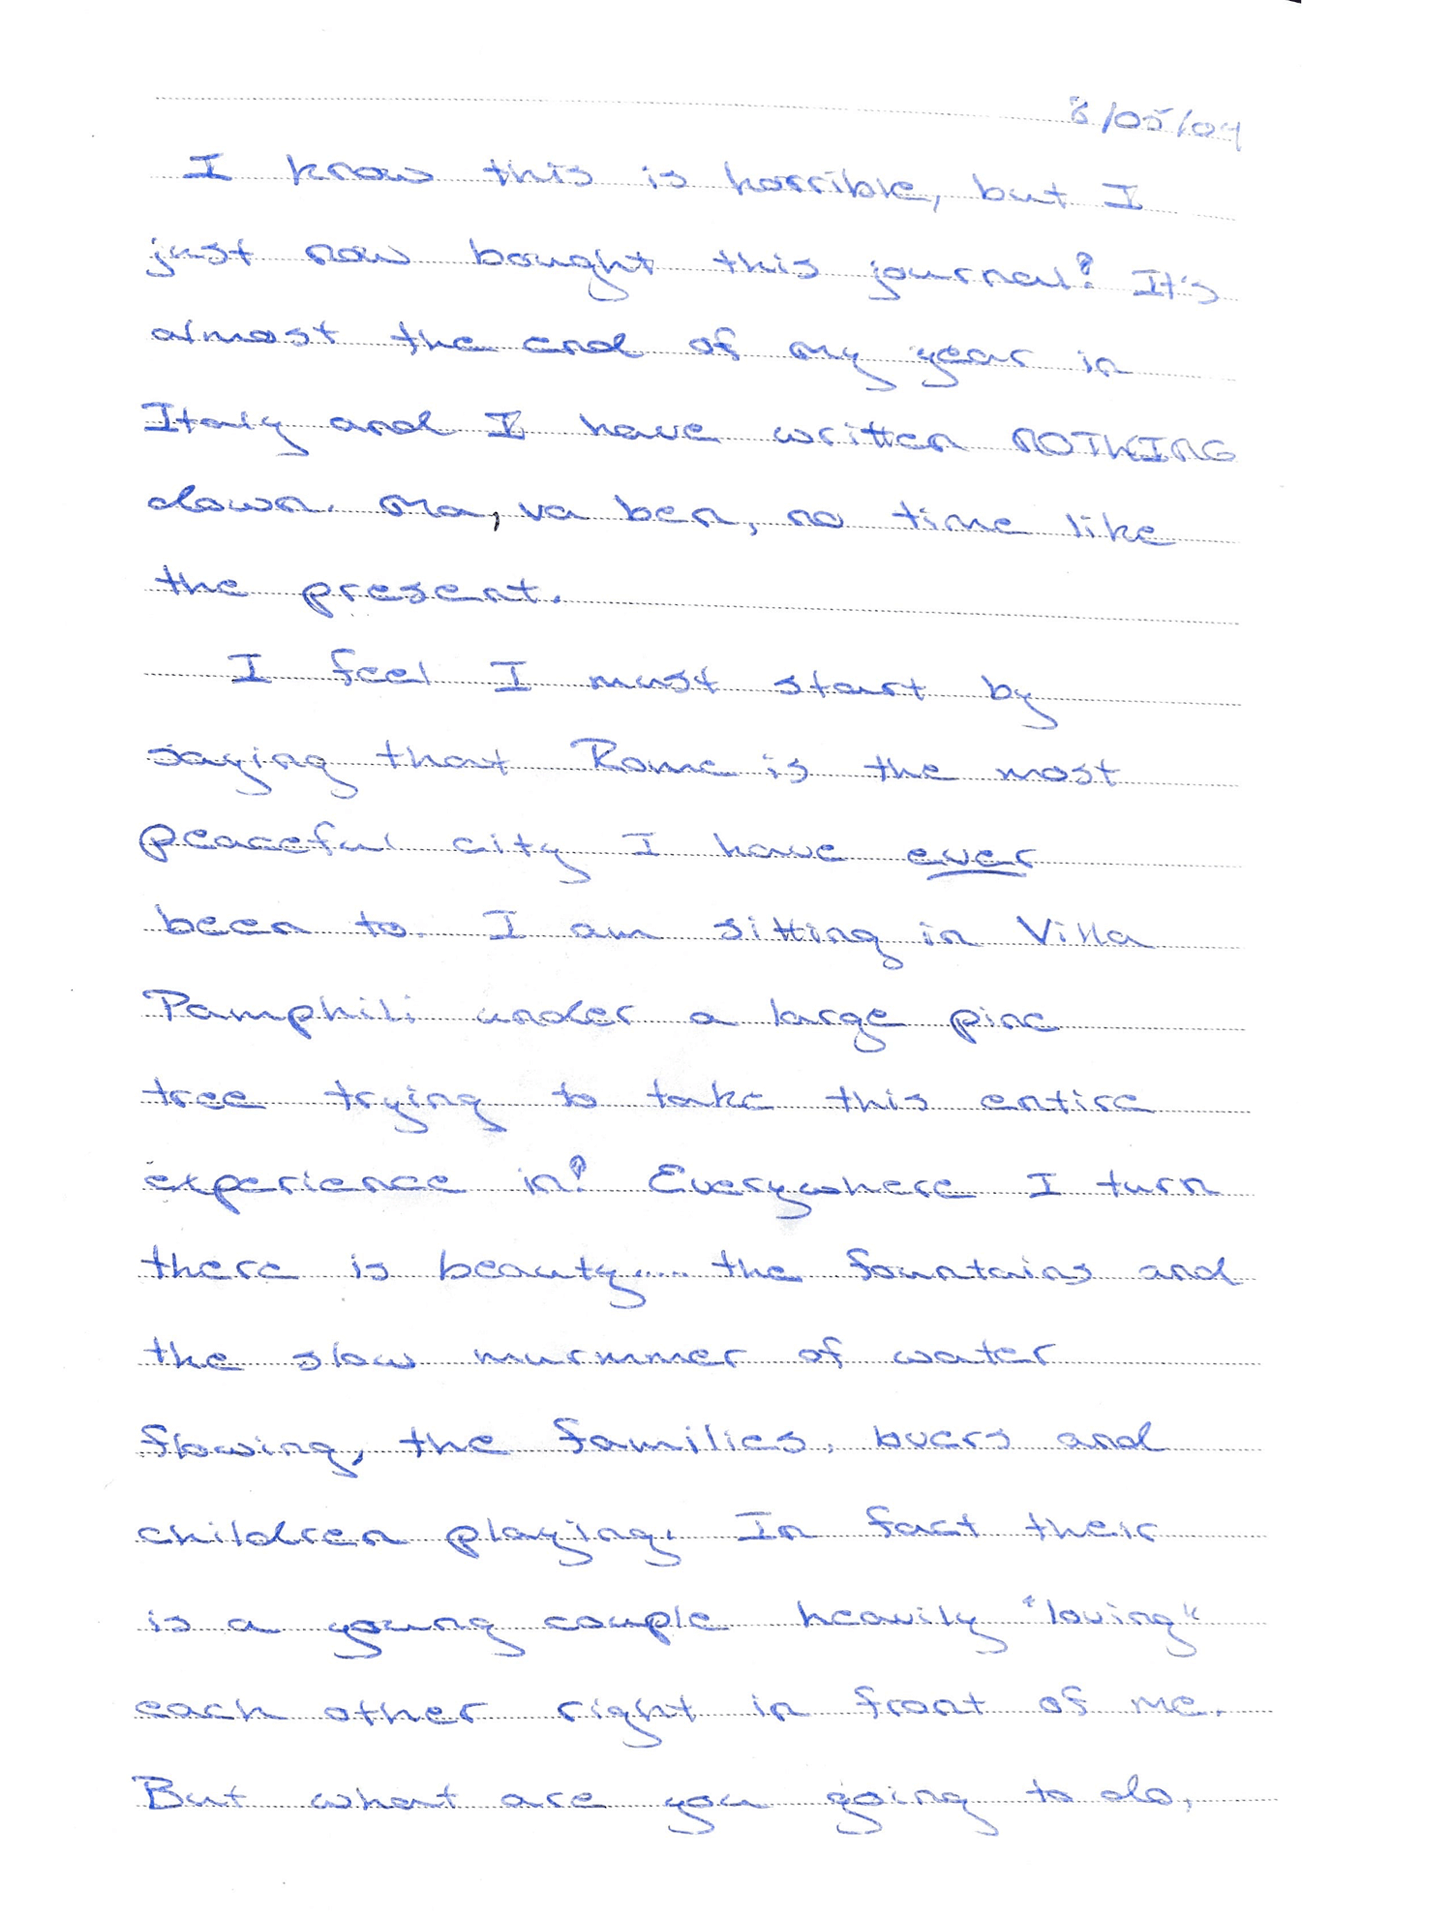 8/05/04
I know this is horrible, but I
just now bought this journal! It's
almost the end of my year in
Italy and I have written NOTHING
down. Ma, va ben, no time like
the present.
I feel I must start by
saying that Rome is the most
peaceful city I have ever
been to. I am sitting in Villa
Pamphili under a large pine
tree trying to take this entire
experience in! Everywhere I turn
there is beauty..... the fountains and
the slow murmmer of water
flowing, the families, lovers and
children playing. In fact their
is a young couple heavily "loving"
each other right in front of me.
But what are you going to do,